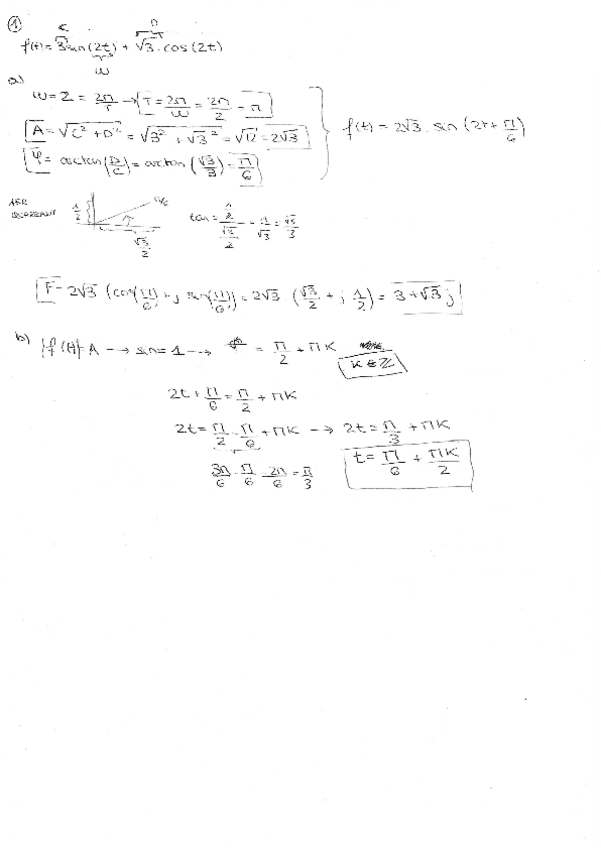 ① C D
f(t) = 3 sin(2t) + √3 · cos(2t)
ω
a)
ω = 2 = 2π/T → T = 2π/ω = 2π/2 = π
A = √(C² + D²) = √(3² + √3²) = √12 = 2√3
φ = arctan(D/C) = arctan(√3/3) = π/6
f(t) = 2√3 · sin(2t + π/6)
1/2 π/6 √3/2
tan = (1/2)/(√3/2) = 1/√3 = √3/3
F = 2√3 (cos(π/6) + j sin(π/6)) = 2√3 · (√3/2 + j 1/2) = 3 + √3 j
b) |f(t)| = A → sin = 1 → φ = π/2 + πK
K ∈ ℤ
2t + π/6 = π/2 + πK
2t = π/2 - π/6 + πK → 2t = π/3 + πK
3π/6 - π/6 = 2π/6 = π/3
t = π/6 + πK/2